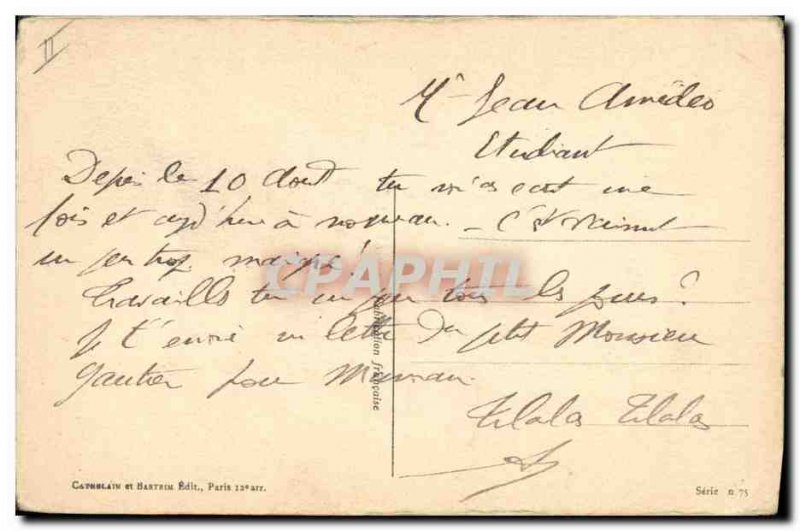 II
Mr Jean Amédéo
Etudiant
Depuis le 10 Aout tu m'as ecrit une
fois et ajd'hui à nouveau. - C'st vraiment
un peu trop maigre!
CPAPHIL
Travailles tu un peu tous les jours?
Je t'envoie une lettre du petit Monsieur
Gautier pour Maman.
Fabrication française
CATHELAIN et BARTRIM Édit., Paris 12e arr.
Série n 75